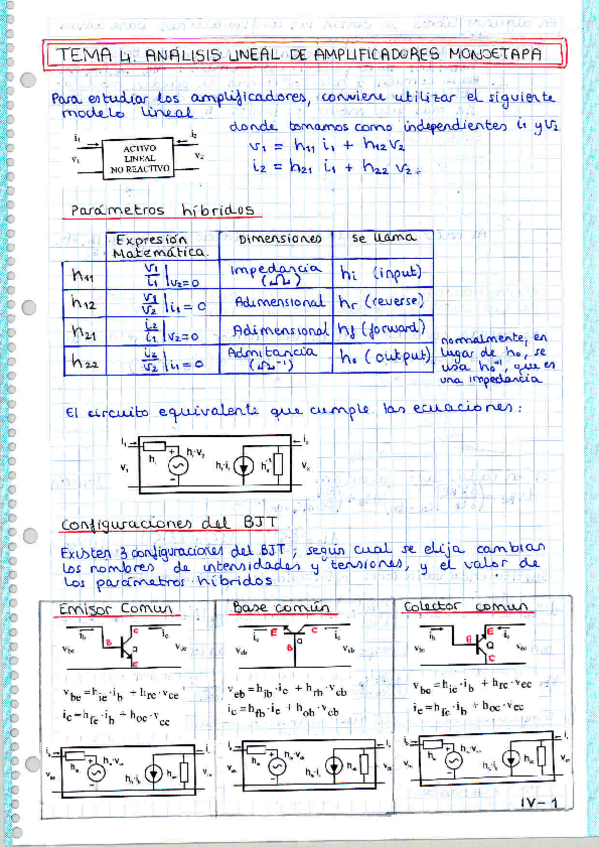 TEMA 4. ANÁLISIS LINEAL DE AMPLIFICADORES MONOETAPA
Para estudiar los amplificadores, conviene utilizar el siguiente
modelo lineal
donde tomamos como independientes i1 y v2
i1 ACTIVO LINEAL NO REACTIVO i2
v1 v2
v1 = h11 i1 + h12 v2
i2 = h21 i1 + h22 v2.
Parámetros híbridos
Expresión Matemática Dimensiones se llama
h11 v1/i1 |v2=0 Impedancia (Ω) hi (input)
h12 v1/v2 |i1=0 Adimensional hr (reverse)
h21 i2/i1 |v2=0 Adimensional hf (forward)
h22 i2/v2 |i1=0 Admitancia (Ω⁻¹) ho (output)
normalmente, en
lugar de ho, se
usa ho⁻¹, que es
una impedancia
El circuito equivalente que cumple las ecuaciones:
i1 i2
v1 hi hr·v2 hf·i1 ho⁻¹ v2
Configuraciones del BJT
Existen 3 configuraciones del BJT, según cual se elija cambian
los nombres de intensidades y tensiones, y el valor de
los parámetros híbridos
Emisor Comun
ib B C Q E ic
vbe vce
vbe=hie·ib + hrc·vce
ic=hfe·ib + hoe·vce
Base común
ie E C Q B ic
veb vcb
veb=hib·ie + hrb·vcb
ic=hfb·ie + hob·vcb
Colector comun
ib B E Q C ie
vbc vec
vbc=hic·ib + hrc·vec
ie=hfc·ib + hoc·vec
IV-1